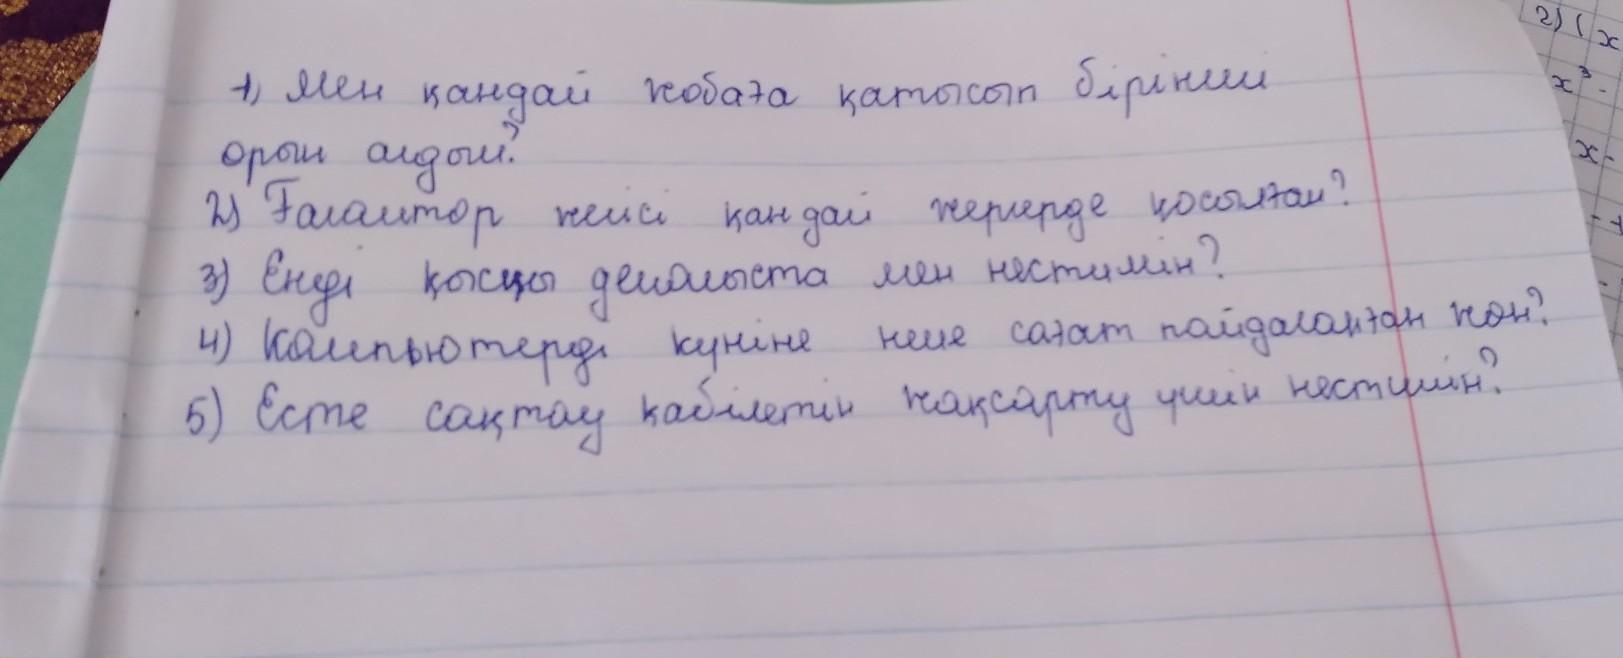 1) Мен қандай жобаға қатысып бірінші
орын алдым?
2) Ғаламтор желісі қандай жерлерде қосылған?
3) Енді қысқы демалыста мен нестимін?
4) Компьютерді күніне неше сағат пайдаланған жөн?
5) Есте сақтау қабілетін жақсарту үшін нестимін?
2) (x
x³ -
x-